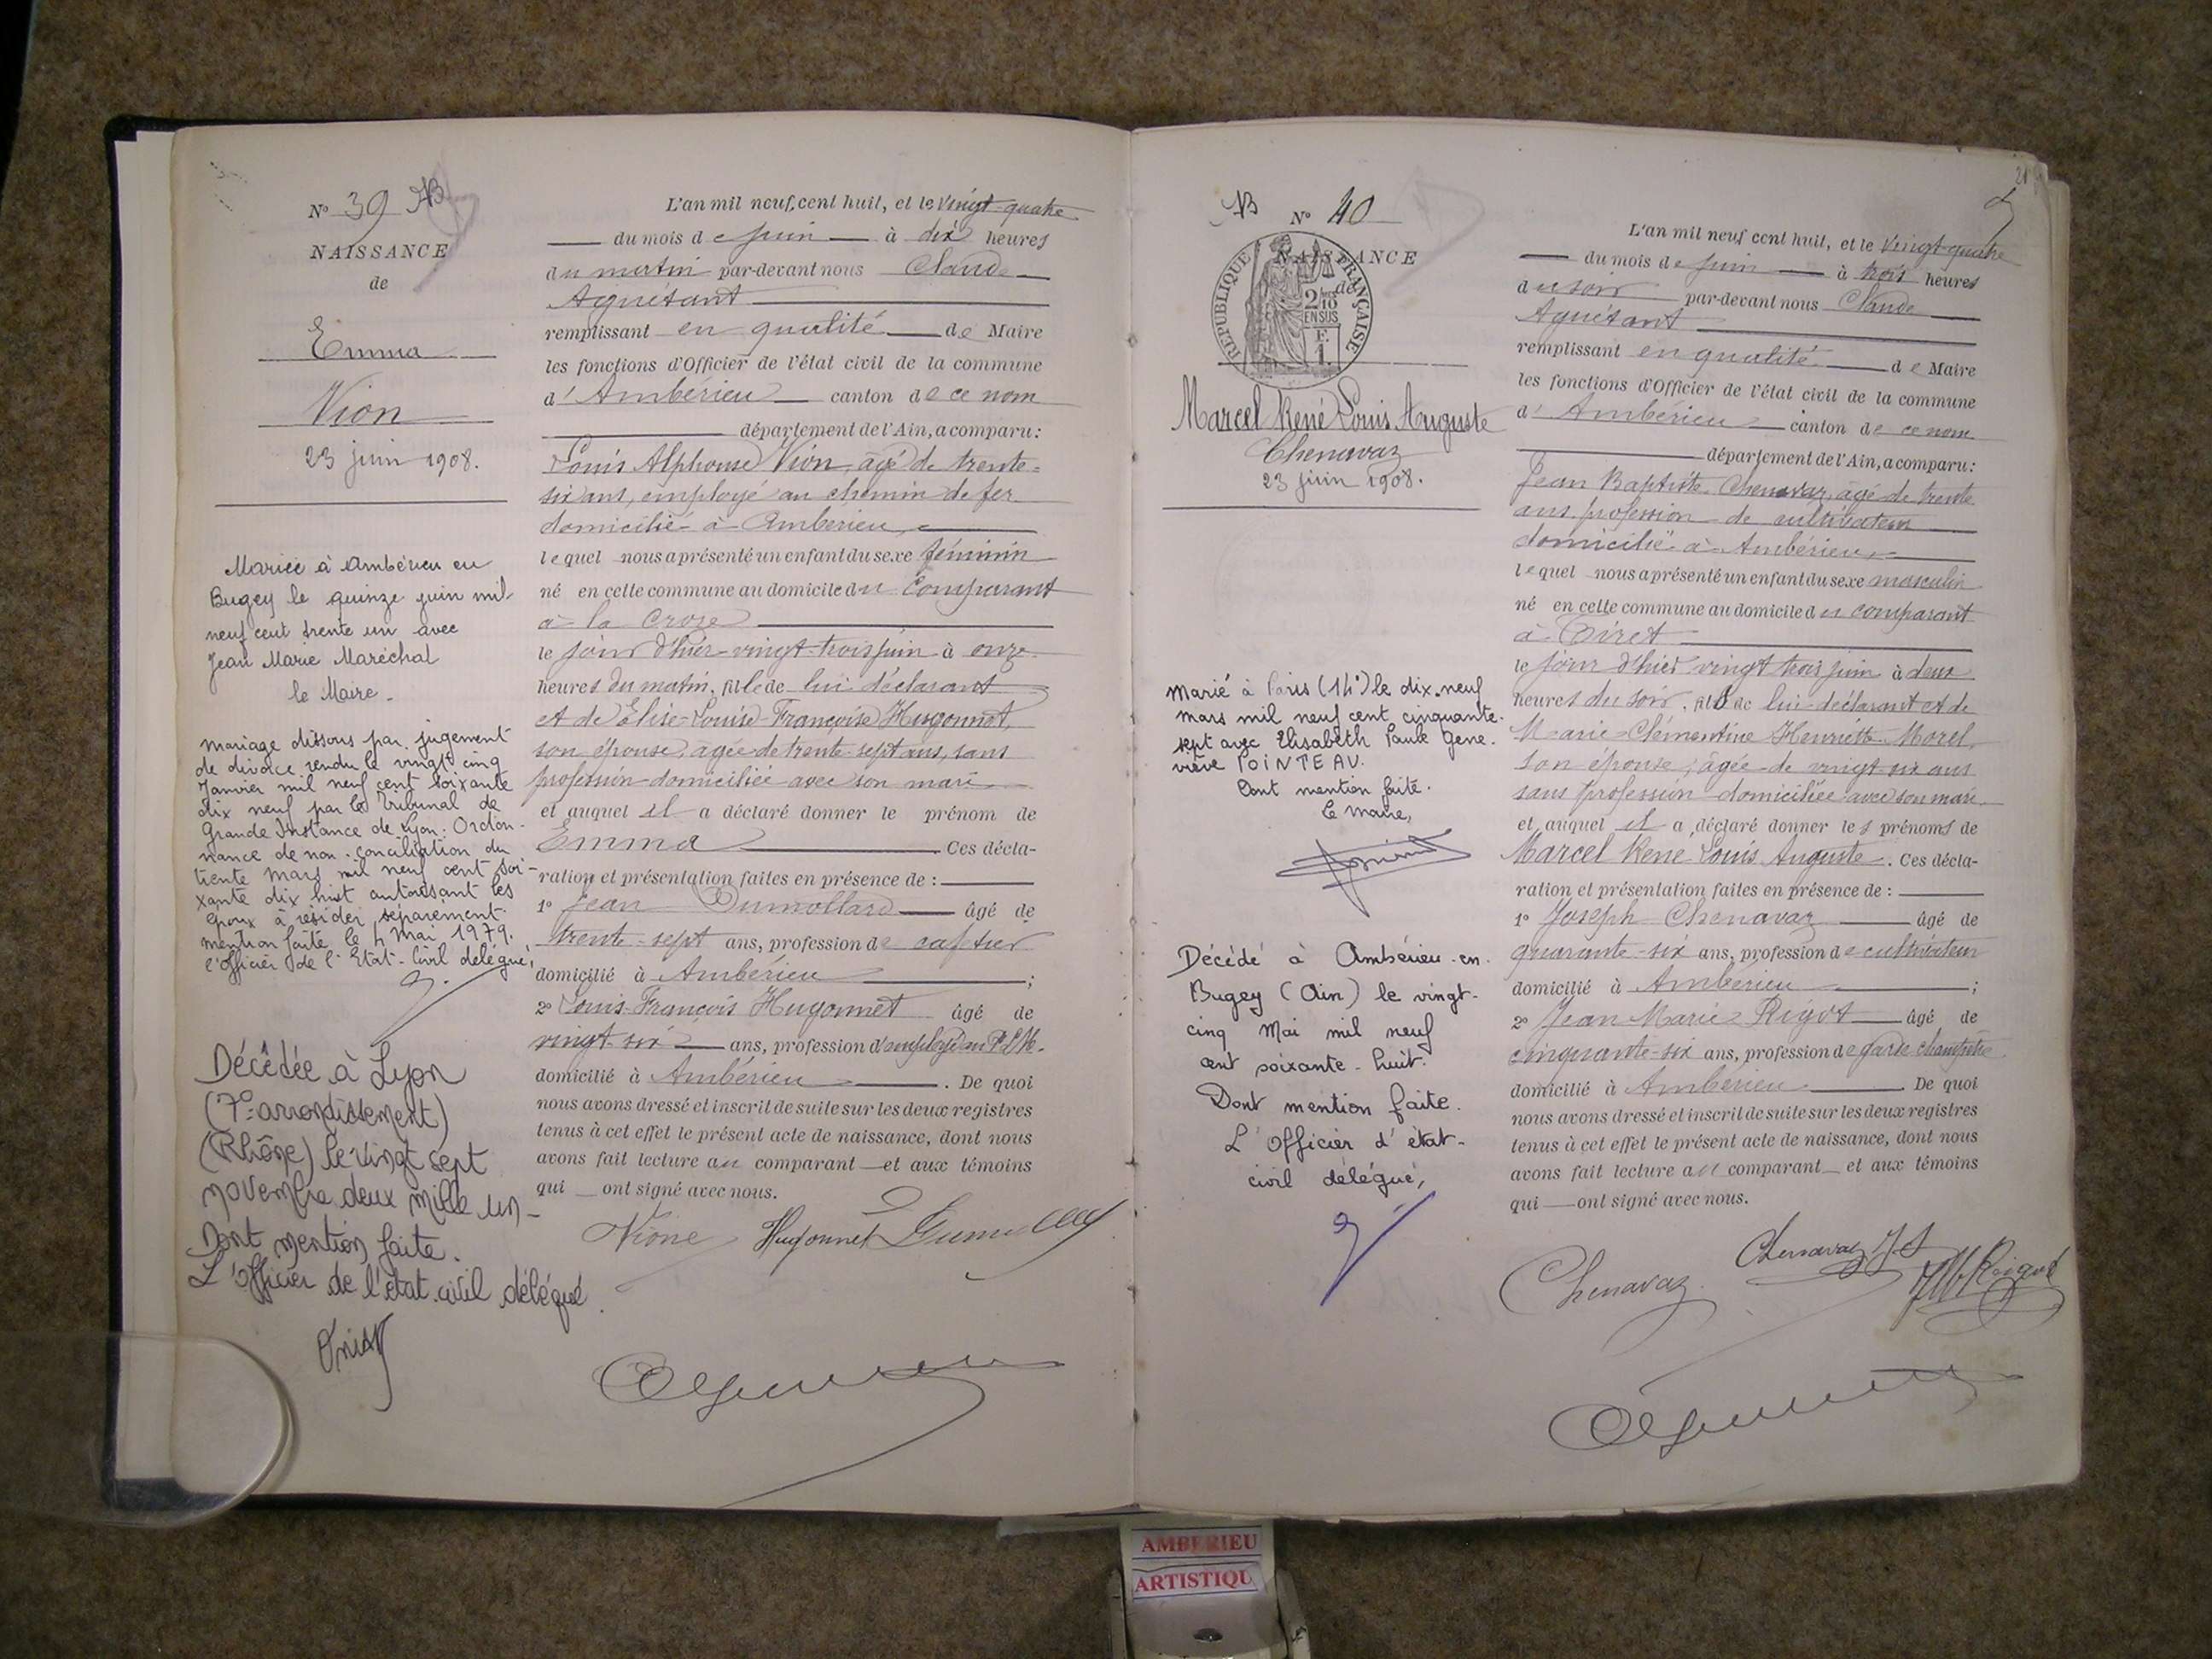 N° 39
NAISSANCE
de
Emma
Vion
23 juin 1908.
Mariée à Ambérieu en
Bugey le quinze juin mil
neuf cent trente un avec
Jean Marie Maréchal
le Maire.
Mariage dissous par jugement
de divorce rendu le vingt cinq
Janvier mil neuf cent soixante
dix neuf par le Tribunal de
Grande Instance de Lyon. Ordon-
nance de non-conciliation du
trente Mars mil neuf cent soi-
xante dix huit autorisant les
époux à résider séparément.
mention faite le 4 Mai 1979.
l'officier de l'Etat-Civil délégué,
Décédée à Lyon
(7e arrondissement)
(Rhône) le vingt sept
novembre deux mille un-
Dont mention faite.
L'Officier de l'état civil délégué.
L'an mil neuf cent huit, et le vingt-quatre
du mois de juin à dix heures
du matin par-devant nous Claude
Aguétant
remplissant en qualité de Maire
les fonctions d'Officier de l'état civil de la commune
d'Ambérieu canton de ce nom
département de l'Ain, a comparu:
Louis Alphonse Vion, âgé de trente-
six ans, employé au chemin de fer
domicilié à Ambérieu,
lequel nous a présenté un enfant du sexe féminin
né en cette commune au domicile du comparant
à la Croze
le jour d'hier vingt-trois juin à onze
heures du matin, fille de lui déclarant
et de Elise-Louise-Françoise Hugonnet,
son épouse, âgée de trente-sept ans, sans
profession domiciliée avec son mari
et auquel il a déclaré donner le prénom de
Emma Ces décla-
ration et présentation faites en présence de :
1° Jean Dumollard âgé de
trente-sept ans, profession de cafetier
domicilié à Ambérieu ;
2° Louis-François Hugonnet âgé de
vingt-six ans, profession d'employé au P.L.M.
domicilié à Ambérieu . De quoi
nous avons dressé et inscrit de suite sur les deux registres
tenus à cet effet le présent acte de naissance, dont nous
avons fait lecture au comparant et aux témoins
qui ont signé avec nous.
Hugonnet
N° 40
NAISSANCE
de
RÉPUBLIQUE FRANÇAISE
2/10
EN SUS
F.
1.
Marcel René Louis Auguste
Chenavaz
23 juin 1908.
Marié à Paris (14e) le dix-neuf
mars mil neuf cent cinquante-
sept avec Elisabeth Paule Gene-
viève POINTEAU.
Dont mention faite.
Le Maire,
Décédé à Ambérieu-en-
Bugey (Ain) le vingt-
cinq Mai mil neuf
cent soixante-huit.
Dont mention faite.
L'Officier d'état-
civil délégué,
L'an mil neuf cent huit, et le vingt-quatre
du mois de juin à trois heures
du soir par-devant nous Claude
Aguétant
remplissant en qualité de Maire
les fonctions d'Officier de l'état civil de la commune
d'Ambérieu canton de ce nom
département de l'Ain, a comparu:
Jean Baptiste Chenavaz, âgé de trente
ans profession de cultivateur
domicilié à Ambérieu,
lequel nous a présenté un enfant du sexe masculin
né en cette commune au domicile du comparant
à Tiret
le jour d'hier vingt trois juin à deux
heures du soir, fils de lui déclarant et de
Marie-Clémentine Henriette Morel,
son épouse, âgée de vingt-six ans
sans profession domiciliée avec son mari
et auquel il a déclaré donner les prénoms de
Marcel René Louis Auguste. Ces décla-
ration et présentation faites en présence de :
1° Joseph Chenavaz âgé de
quarante-six ans, profession de cultivateur
domicilié à Ambérieu ;
2° Jean Marie Rigot âgé de
cinquante-six ans, profession de garde champêtre
domicilié à Ambérieu . De quoi
nous avons dressé et inscrit de suite sur les deux registres
tenus à cet effet le présent acte de naissance, dont nous
avons fait lecture au comparant et aux témoins
qui ont signé avec nous.
Chenavaz
Chenavaz
AMBERIEU
ARTISTIQU